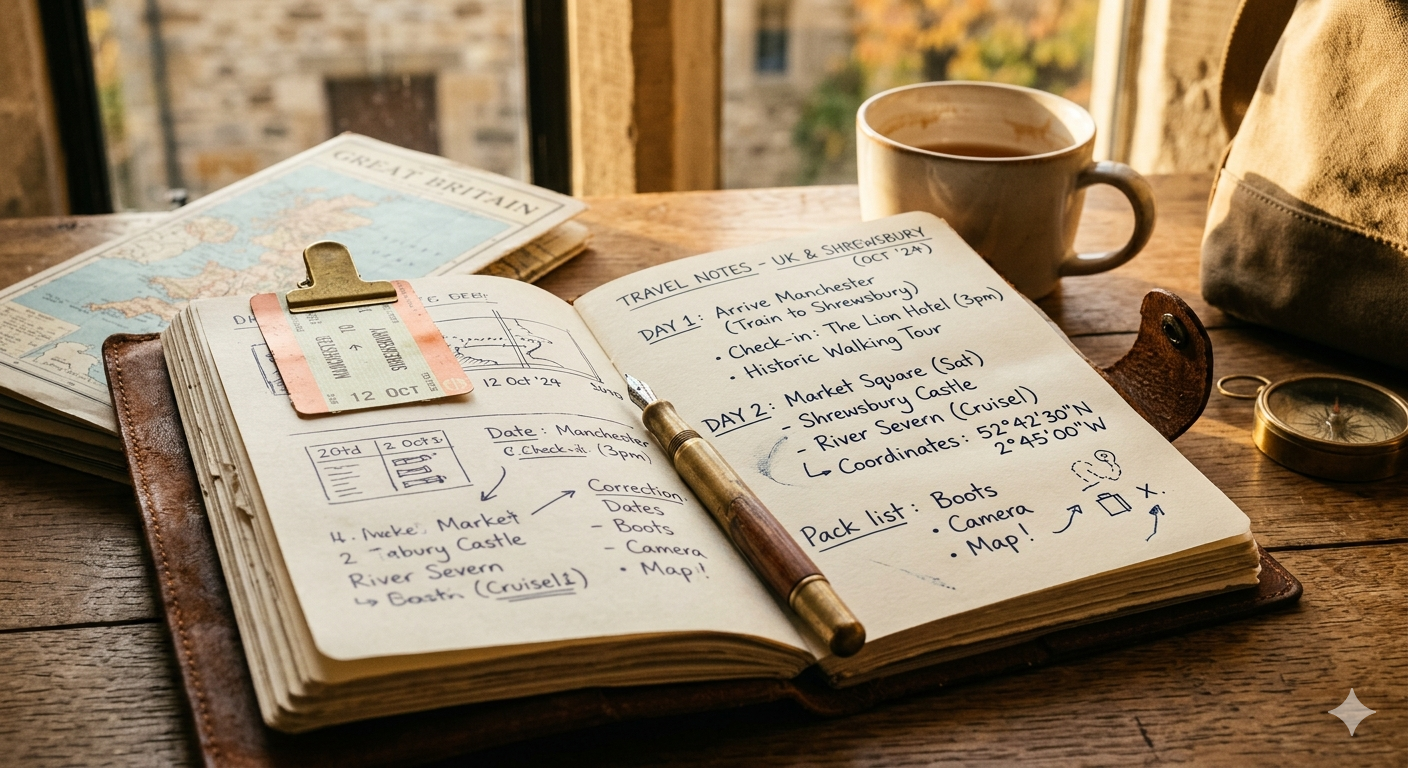 GREAT BRITAIN
MANCHESTER
TO
SHREWSBURY
12 OCT
12 Oct '24
20td
2 Octs.
Date: Manchester
Check-it. (3pm)
4. Market
2 Castle
River Severn
↳ (Cruise!1)
Correction
Dates
- Boots
- Camera
• Map!
TRAVEL NOTES - UK & SHREWSBURY
(OCT '24)
DAY 1: Arrive Manchester
(Train to Shrewsbury)
• Check-in: The Lion Hotel (3pm)
• Historic Walking Tour
DAY 2: Market Square (Sat)
- Shrewsbury Castle
- River Severn (Cruise!)
↳ Coordinates: 52°42'30"N
2°45'00"W
Pack list: Boots
• Camera
• Map!
X.